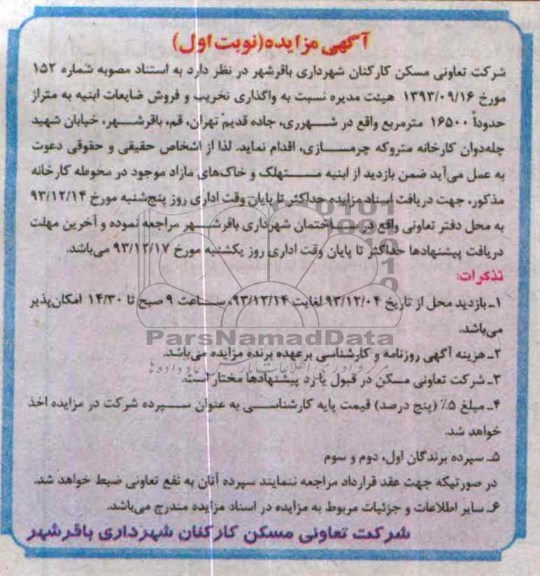 آگهی مزایده(نوبت اول)
شرکت تعاونی مسکن کارکنان شهرداری باقرشهر در نظر دارد به استناد مصوبه شماره ۱۵۲
مورخ ۱۳۹۳/۰۹/۱۶ هیئت مدیره نسبت به واگذاری تخریب و فروش ضایعات ابنیه به متراژ
حدوداً ۱۶۵۰۰ مترمربع واقع در شهرری، جاده قدیم تهران، قم، باقرشهر، خیابان شهید
چله‌دوان کارخانه متروکه چرمسازی، اقدام نماید. لذا از اشخاص حقیقی و حقوقی دعوت
به عمل می‌آید ضمن بازدید از ابنیه مستهلک و خاک‌های مازاد موجود در محوطه کارخانه
مذکور، جهت دریافت اسناد مزایده حداکثر تا پایان وقت اداری روز پنج‌شنبه مورخ ۹۳/۱۲/۱۴
به محل دفتر تعاونی واقع در ساختمان شهرداری باقرشهر مراجعه نموده و آخرین مهلت
دریافت پیشنهادها حداکثر تا پایان وقت اداری روز یکشنبه مورخ ۹۳/۱۲/۱۷ می‌باشد.
تذکرات:
۱ـ بازدید محل از تاریخ ۹۳/۱۲/۰۴ لغایت ۹۳/۱۲/۱۴، ساعت ۹ صبح تا ۱۴/۳۰ امکان‌پذیر
می‌باشد.
ParsNamadData
۲ـ هزینه آگهی روزنامه و کارشناسی برعهده برنده مزایده می‌باشد.
۳ـ شرکت تعاونی مسکن در قبول یا رد پیشنهادها مختار است.
۴ـ مبلغ ۵٪ (پنج درصد) قیمت پایه کارشناسی به عنوان سپرده شرکت در مزایده اخذ
خواهد شد.
۵ـ سپرده برندگان اول، دوم و سوم
در صورتیکه جهت عقد قرارداد مراجعه ننمایند سپرده آنان به نفع تعاونی ضبط خواهد شد.
۶ـ سایر اطلاعات و جزئیات مربوط به مزایده در اسناد مزایده مندرج می‌باشد.
شرکت تعاونی مسکن کارکنان شهرداری باقرشهر